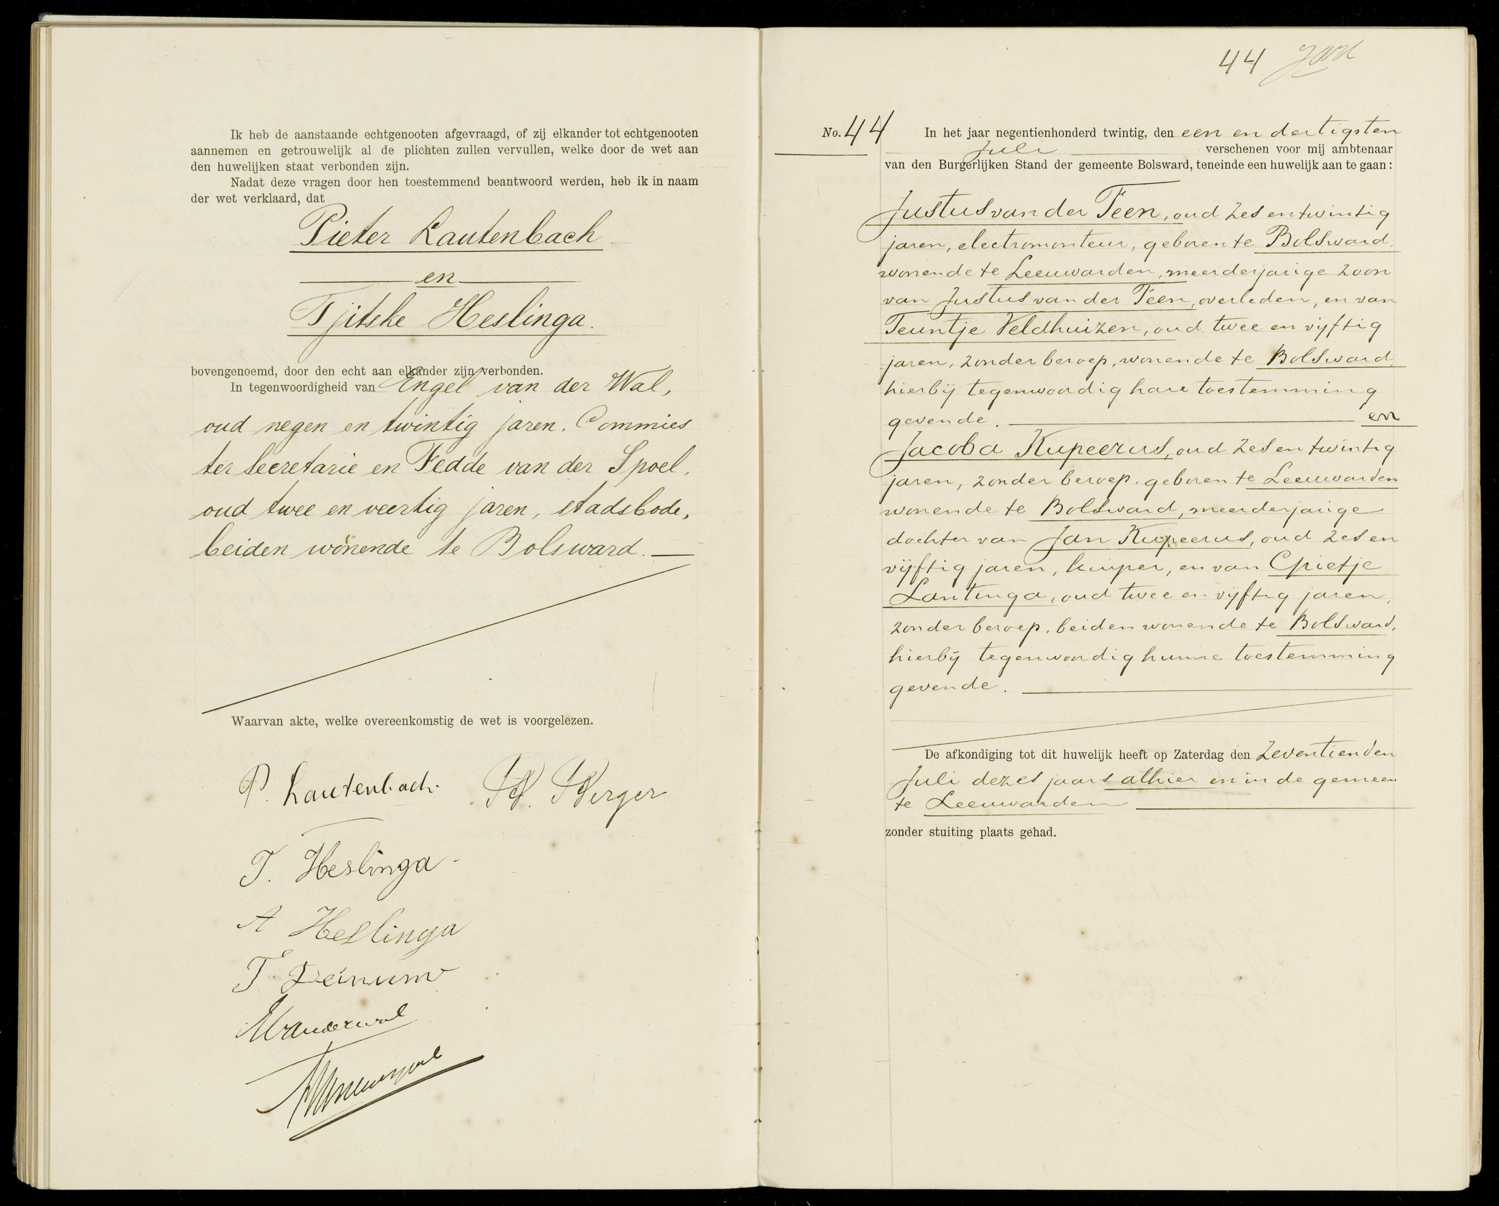 Ik heb de aanstaande echtgenooten afgevraagd, of zij elkander tot echtgenooten
aannemen en getrouwelijk al de plichten zullen vervullen, welke door de wet aan
den huwelijken staat verbonden zijn.
Nadat deze vragen door hen toestemmend beantwoord werden, heb ik in naam
der wet verklaard, dat
Pieter Lautenbach
en
Tjitske Heslinga.
bovengenoemd, door den echt aan elkander zijn verbonden.
In tegenwoordigheid van Engel van der Wal,
oud negen en twintig jaren. Commies
ter Secretarie en Fedde van der Spoel.
oud twee en veertig jaren, stadsbode,
beiden wonende te Bolsward.
Waarvan akte, welke overeenkomstig de wet is voorgelezen.
P. Lautenbach. Berger
T. Heslinga.
A Heslinga
T Deinum
EvanderWal
44
No. 44 In het jaar negentienhonderd twintig, den een en dertigsten
Juli verschenen voor mij ambtenaar
van den Burgerlijken Stand der gemeente Bolsward, teneinde een huwelijk aan te gaan:
Justus van der Veen, oud zes en twintig
jaren, electromonteur, geboren te Bolsward
wonende te Leeuwarden, meerderjarige zoon
van Justus van der Veen, overleden, en van
Teuntje Veldhuizen, oud twee en vijftig
jaren, zonder beroep, wonende te Bolsward
hierbij tegenwoordig hare toestemming
gevende. en
Jacoba Kupeerus, oud zes en twintig
jaren, zonder beroep. geboren te Leeuwarden
wonende te Bolsward, meerderjarige
dochter van Jan Kupeerus, oud zes en
vijftig jaren, kuiper, en van Grietje
Lantinga, oud twee en vijftig jaren,
zonder beroep, beiden wonende te Bolsward,
hierbij tegenwoordig hunne toestemming
gevende.
De afkondiging tot dit huwelijk heeft op Zaterdag den zeventienden
Juli dezes jaars alhier en in de gemeen
te Leeuwarden
zonder stuiting plaats gehad.